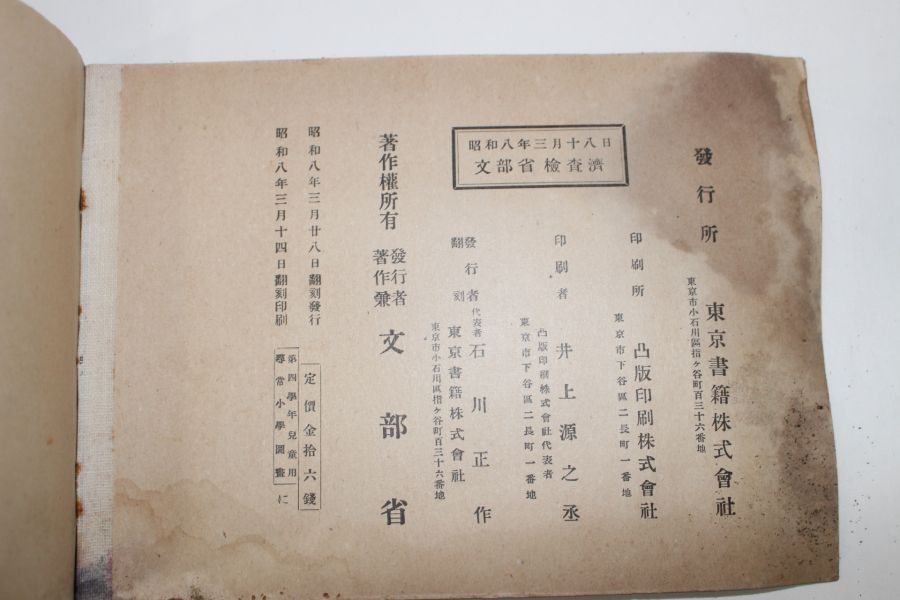 昭和八年三月十八日
文部省檢査濟
昭和八年三月十四日翻刻印刷
尋常小學圖畫 に
第四學年兒童用
昭和八年三月廿八日翻刻發行
定價金拾六錢
著作權所有
著作兼
發行者
文部省
翻刻
發行者
東京市小石川區指ヶ谷町百三十六番地
東京書籍株式會社
代表者 石川正作
印刷者
東京市下谷區二長町一番地
凸版印刷株式會社代表者
井上源之丞
印刷所
東京市下谷區二長町一番地
凸版印刷株式會社
發行所
東京市小石川區指ヶ谷町百三十六番地
東京書籍株式會社